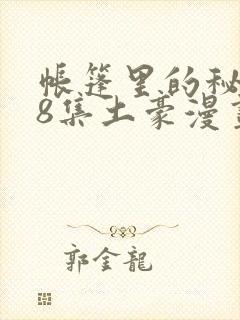 帐篷里的秘
8集土豪漫画
郭金龍